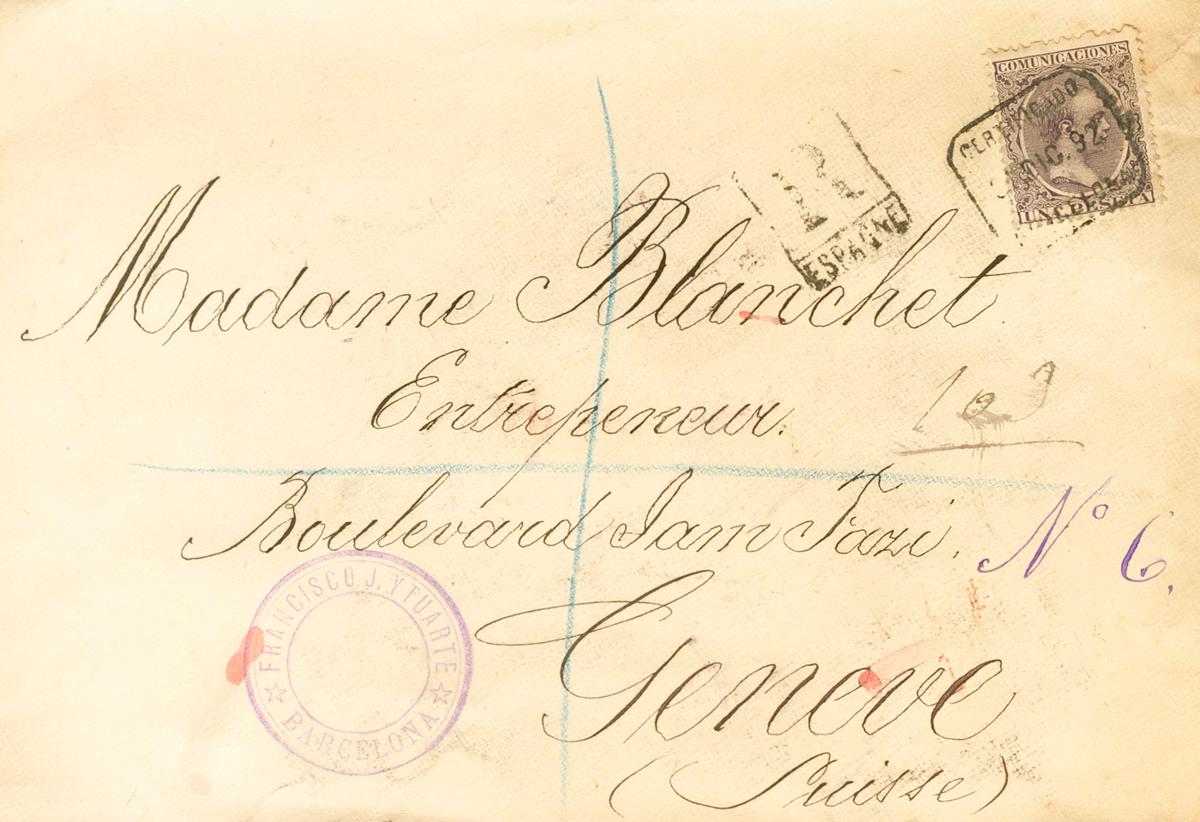 COMUNICACIONES
CERTIFICADO
DIC. 92
BARCELONA
UNA PESETA
R
ESPAGNE
Madame Blanchet
Entrepeneur.
Boulevard Jam Fazi. Nº 6.
FRANCISCO J. YTUARTE
BARCELONA
Geneve
(Suisse)